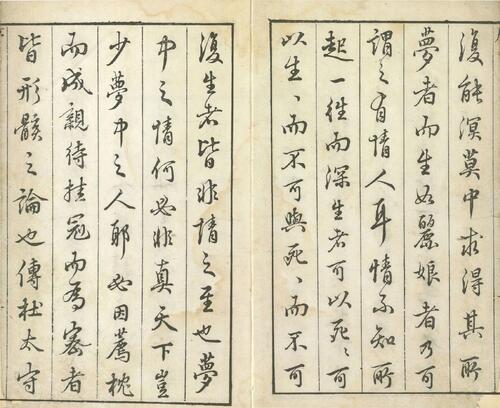 復能溟莫中求得其所
夢者而生如麗娘者乃可
謂之有情人耳情不知所
起一往而深生者可以死〻可
以生〻而不可與死〻而不可
復生者皆非情之至也夢
中之情何必非真天下豈
少夢中之人耶必因薦枕
而成親待挂冠而為密者
皆形骸之論也傳杜太守